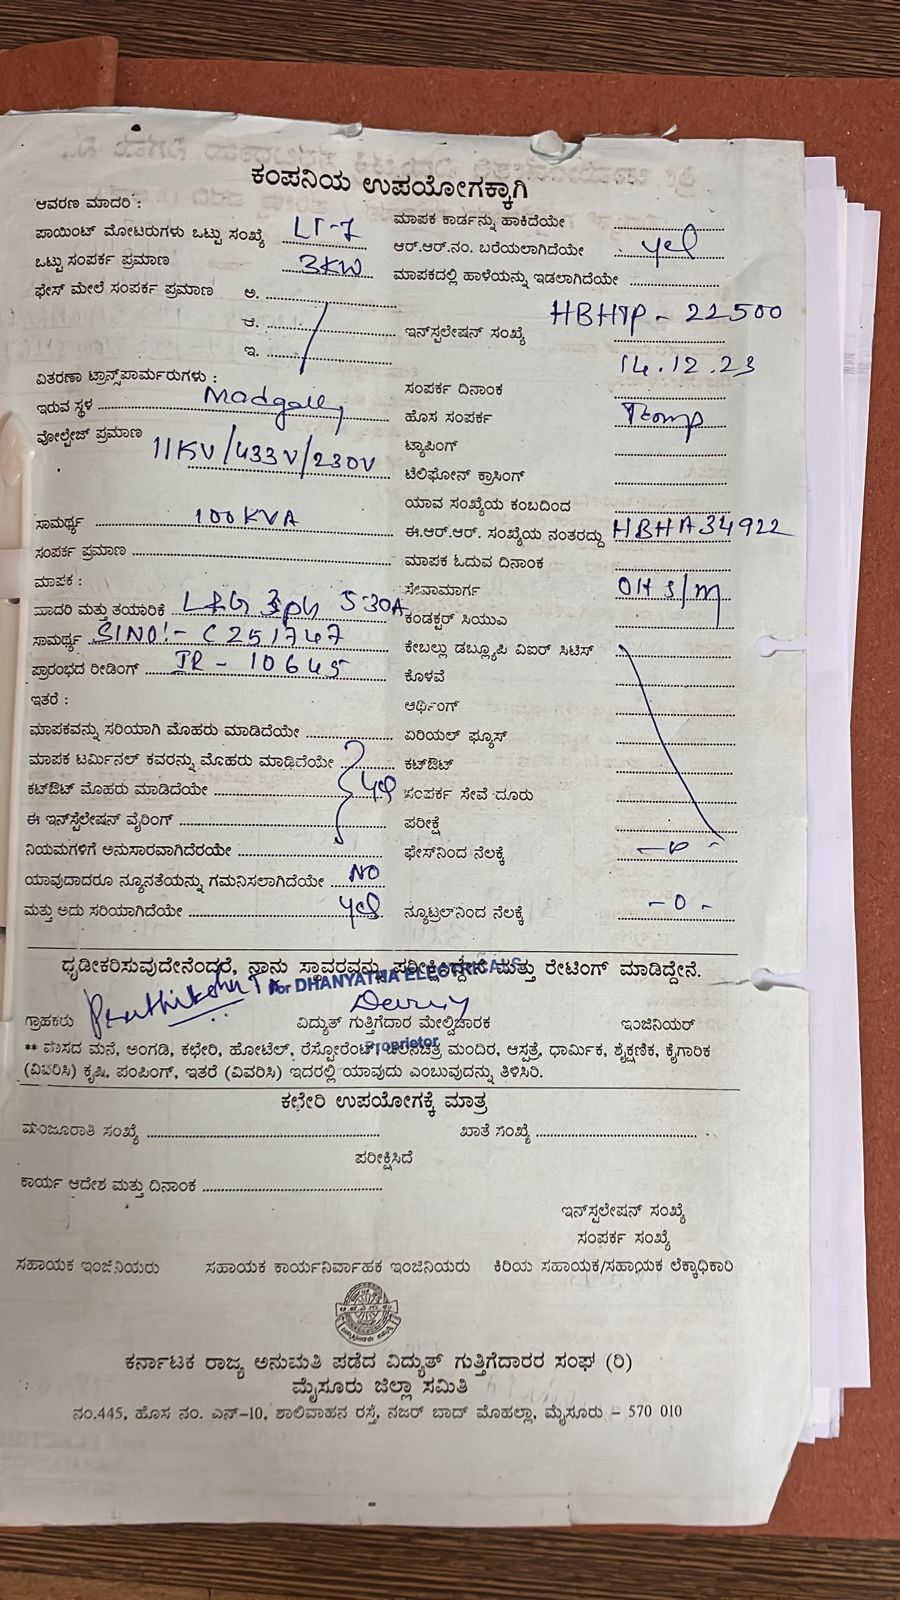 ಕಂಪನಿಯ ಉಪಯೋಗಕ್ಕಾಗಿ
ಆವರಣ ಮಾದರಿ :
ಪಾಯಿಂಟ್ ಮೋಟರುಗಳು ಒಟ್ಟು ಸಂಖ್ಯೆ LT-7
ಒಟ್ಟು ಸಂಪರ್ಕ ಪ್ರಮಾಣ 3KW
ಫೇಸ್ ಮೇಲೆ ಸಂಪರ್ಕ ಪ್ರಮಾಣ ಅ.
ಆ.
ಇ.
ವಿತರಣಾ ಟ್ರಾನ್ಸ್‌ಫಾರ್ಮರುಗಳು :
ಇರುವ ಸ್ಥಳ
ವೋಲ್ಟೇಜ್ ಪ್ರಮಾಣ 11KV/433V/230V
ಸಾಮರ್ಥ್ಯ 100KVA
ಸಂಪರ್ಕ ಪ್ರಮಾಣ
ಮಾಪಕ :
ಮಾದರಿ ಮತ್ತು ತಯಾರಿಕೆ L&G 3ph 5-30A
ಸಾಮರ್ಥ್ಯ SINO:- C251747
ಪ್ರಾರಂಭದ ರೀಡಿಂಗ್ IR - 10645
ಇತರೆ :
ಮಾಪಕವನ್ನು ಸರಿಯಾಗಿ ಮೊಹರು ಮಾಡಿದೆಯೇ
ಮಾಪಕ ಟರ್ಮಿನಲ್ ಕವರನ್ನು ಮೊಹರು ಮಾಡಿದೆಯೇ
ಕಟ್‌ಔಟ್ ಮೊಹರು ಮಾಡಿದೆಯೇ yes
ಈ ಇನ್‌ಸ್ಟೆಲೇಷನ್ ವೈರಿಂಗ್
ನಿಯಮಗಳಿಗೆ ಅನುಸಾರವಾಗಿದೆರಯೇ
ಯಾವುದಾದರೂ ನ್ಯೂನತೆಯನ್ನು ಗಮನಿಸಲಾಗಿದೆಯೇ NO
ಮತ್ತು ಅದು ಸರಿಯಾಗಿದೆಯೇ yes
ಮಾಪಕ ಕಾರ್ಡನ್ನು ಹಾಕಿದೆಯೇ
ಆರ್.ಆರ್.ನಂ. ಬರೆಯಲಾಗಿದೆಯೇ yes
ಮಾಪಕದಲ್ಲಿ ಹಾಳೆಯನ್ನು ಇಡಲಾಗಿದೆಯೇ
ಇನ್‌ಸ್ಟಲೇಷನ್ ಸಂಖ್ಯೆ HBHTP - 22500
ಸಂಪರ್ಕ ದಿನಾಂಕ 14.12.23
ಹೊಸ ಸಂಪರ್ಕ Temp
ಟ್ಯಾಪಿಂಗ್
ಟೆಲಿಫೋನ್ ಕ್ರಾಸಿಂಗ್
ಯಾವ ಸಂಖ್ಯೆಯ ಕಂಬದಿಂದ
ಈ.ಆರ್.ಆರ್. ಸಂಖ್ಯೆಯ ನಂತರದ್ದು HBHA34922
ಮಾಪಕ ಓದುವ ದಿನಾಂಕ
ಸೇವಾಮಾರ್ಗ OH S/M
ಕಂಡಕ್ಟರ್ ಸಿಯುವಿ
ಕೇಬಲ್ಲು ಡಬ್ಲ್ಯೂಪಿ ವಿಐರ್ ಸಿಟಿಸ್
ಕೊಳವೆ
ಆರ್ಥಿಂಗ್
ಏರಿಯಲ್ ಫ್ಯೂಸ್
ಕಟ್‌ಔಟ್
ಸಂಪರ್ಕ ಸೇವೆ ದೂರು
ಪರೀಕ್ಷೆ
ಫೇಸ್‌ನಿಂದ ನೆಲಕ್ಕೆ -0-
ನ್ಯೂಟ್ರಲ್‌ನಿಂದ ನೆಲಕ್ಕೆ -0-
ಧೃಡೀಕರಿಸುವುದೇನೆಂದರೆ, ನಾನು ಸ್ಥಾವರವನ್ನು ಪರೀಕ್ಷಿಸಿದ್ದೇನೆ ಮತ್ತು ರೇಟಿಂಗ್ ಮಾಡಿದ್ದೇನೆ.
For DHANYATHA ELECTRICALS
ಗ್ರಾಹಕರು ವಿದ್ಯುತ್ ಗುತ್ತಿಗೆದಾರ ಮೇಲ್ವಿಚಾರಕ ಇಂಜಿನಿಯರ್
Proprietor
** ವಾಸದ ಮನೆ, ಅಂಗಡಿ, ಕಛೇರಿ, ಹೋಟೆಲ್, ರೆಸ್ಟೋರೆಂಟ್, ಚಲನಚಿತ್ರ ಮಂದಿರ, ಆಸ್ಪತ್ರೆ, ಧಾರ್ಮಿಕ, ಶೈಕ್ಷಣಿಕ, ಕೈಗಾರಿಕ
(ವಿವರಿಸಿ) ಕೃಷಿ, ಪಂಪಿಂಗ್, ಇತರೆ (ವಿವರಿಸಿ) ಇದರಲ್ಲಿ ಯಾವುದು ಎಂಬುವುದನ್ನು ತಿಳಿಸಿರಿ.
ಕಛೇರಿ ಉಪಯೋಗಕ್ಕೆ ಮಾತ್ರ
ಮಂಜೂರಾತಿ ಸಂಖ್ಯೆ ಖಾತೆ ಸಂಖ್ಯೆ
ಪರೀಕ್ಷಿಸಿದೆ
ಕಾರ್ಯ ಆದೇಶ ಮತ್ತು ದಿನಾಂಕ
ಇನ್‌ಸ್ಟಲೇಷನ್ ಸಂಖ್ಯೆ
ಸಂಪರ್ಕ ಸಂಖ್ಯೆ
ಸಹಾಯಕ ಇಂಜಿನಿಯರು ಸಹಾಯಕ ಕಾರ್ಯನಿರ್ವಾಹಕ ಇಂಜಿನಿಯರು ಕಿರಿಯ ಸಹಾಯಕ/ಸಹಾಯಕ ಲೆಕ್ಕಾಧಿಕಾರಿ
ಕರ್ನಾಟಕ ರಾಜ್ಯ ಅನುಮತಿ ಪಡೆದ ವಿದ್ಯುತ್ ಗುತ್ತಿಗೆದಾರರ ಸಂಘ (ರಿ)
ಮೈಸೂರು ಜಿಲ್ಲಾ ಸಮಿತಿ
ನಂ.445, ಹೊಸ ನಂ. ಎನ್-10, ಶಾಲಿವಾಹನ ರಸ್ತೆ, ನಜರ್ ಬಾದ್ ಮೊಹಲ್ಲಾ, ಮೈಸೂರು - 570 010